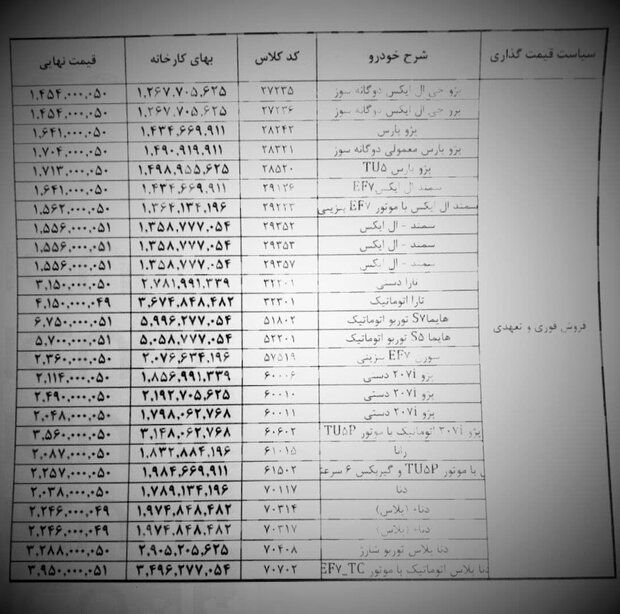 سیاست قیمت گذاری شرح خودرو کد کلاس بهای کارخانه قیمت نهایی
پژو جی ال ایکس دوگانه سوز ۲۷۲۳۵ ۱,۲۶۷,۷۰۵,۶۲۵ ۱,۴۵۴,۰۰۰,۰۵۰
ال ایکس دوگانه سوز ۲۷۲۳۶ ۱,۲۶۷,۷۰۵,۶۲۵ ۱,۴۵۴,۰۰۰,۰۵۰
پژو پارس ۲۸۲۴۲ ۱,۴۳۴,۶۶۹,۹۱۱ ۱,۶۴۱,۰۰۰,۰۵۰
پژو پارس معمولی دوگانه سوز ۲۸۳۲۱ ۱,۴۹۰,۹۱۹,۹۱۱ ۱,۷۰۴,۰۰۰,۰۵۰
پژو پارس TU۵ ۲۸۵۲۰ ۱,۴۹۸,۹۵۵,۶۲۵ ۱,۷۱۳,۰۰۰,۰۵۰
سمند ال ایکس EF۷ ۲۹۱۲۶ ۱,۴۳۴,۶۶۹,۹۱۱ ۱,۶۴۱,۰۰۰,۰۵۰
سمند ال ایکس با موتور EF۷ بنزینی ۱,۳۶۴,۱۳۴,۱۹۶ ۱,۵۶۲,۰۰۰,۰۵۰
سمند - ال ایکس ۲۹۳۵۲ ۱,۳۵۸,۷۷۷,۰۵۴ ۱,۵۵۶,۰۰۰,۰۵۱
سمند - ال ایکس ۲۹۳۵۳ ۱,۳۵۸,۷۷۷,۰۵۴ ۱,۵۵۶,۰۰۰,۰۵۱
سمند - ال ایکس ۲۹۳۵۷ ۱,۳۵۸,۷۷۷,۰۵۴ ۱,۵۵۶,۰۰۰,۰۵۱
تارا دستی ۳۲۲۰۱ ۲,۷۸۱,۹۹۱,۳۳۹ ۳,۱۵۰,۰۰۰,۰۵۰
تارا اتوماتیک ۳۲۳۰۱ ۳,۶۷۴,۸۴۸,۴۸۲ ۴,۱۵۰,۰۰۰,۰۴۹
هایما S۷ توربو اتوماتیک ۵۱۸۰۲ ۵,۹۹۶,۲۷۷,۰۵۴ ۶,۷۵۰,۰۰۰,۰۵۱
فروش فوری و تعهدی
هایما S۵ توربو اتوماتیک ۵۲۲۰۱ ۵,۰۵۸,۷۷۷,۰۵۴ ۵,۷۰۰,۰۰۰,۰۵۱
سورن EF۷ ۵۷۵۱۹ ۲,۰۷۶,۶۳۴,۱۹۶ ۲,۳۶۰,۰۰۰,۰۵۰
پژو ۲۰۷i دستی ۶۰۰۰۶ ۱,۸۵۶,۹۹۱,۳۳۹ ۲,۱۱۴,۰۰۰,۰۵۰
پژو ۲۰۷i دستی ۶۰۰۱۰ ۲,۱۹۲,۷۰۵,۶۲۵ ۲,۴۹۰,۰۰۰,۰۵۰
پژو ۲۰۷i دستی ۶۰۰۱۱ ۱,۷۹۸,۰۶۲,۷۶۸ ۲,۰۴۸,۰۰۰,۰۵۰
پژو ۲۰۷i اتوماتیک با موتور TU۵P ۶۰۶۰۲ ۳,۱۴۸,۰۶۲,۷۶۸ ۳,۵۶۰,۰۰۰,۰۵۰
رانا ۶۱۰۱۵ ۱,۸۳۲,۸۸۴,۱۹۶ ۲,۰۸۷,۰۰۰,۰۵۰
با موتور TU۵P و گیربکس ۶ سرعته ۶۱۵۰۲ ۱,۹۸۴,۶۶۹,۹۱۱ ۲,۲۵۷,۰۰۰,۰۵۰
دنا ۷۰۱۱۷ ۱,۷۸۹,۱۳۴,۱۹۶ ۲,۰۳۸,۰۰۰,۰۵۰
دنا+ (پلاس) ۷۰۳۱۴ ۱,۹۷۴,۸۴۸,۴۸۲ ۲,۲۴۶,۰۰۰,۰۴۹
دنا+ (پلاس) ۷۰۳۱۷ ۱,۹۷۴,۸۴۸,۴۸۲ ۲,۲۴۶,۰۰۰,۰۴۹
دنا پلاس توربو شارژ ۷۰۴۰۸ ۲,۹۰۵,۲۰۵,۶۲۵ ۳,۲۸۸,۰۰۰,۰۵۰
دنا پلاس اتوماتیک با موتور EF۷_TC ۷۰۷۰۲ ۳,۴۹۶,۲۷۷,۰۵۴ ۳,۹۵۰,۰۰۰,۰۵۱